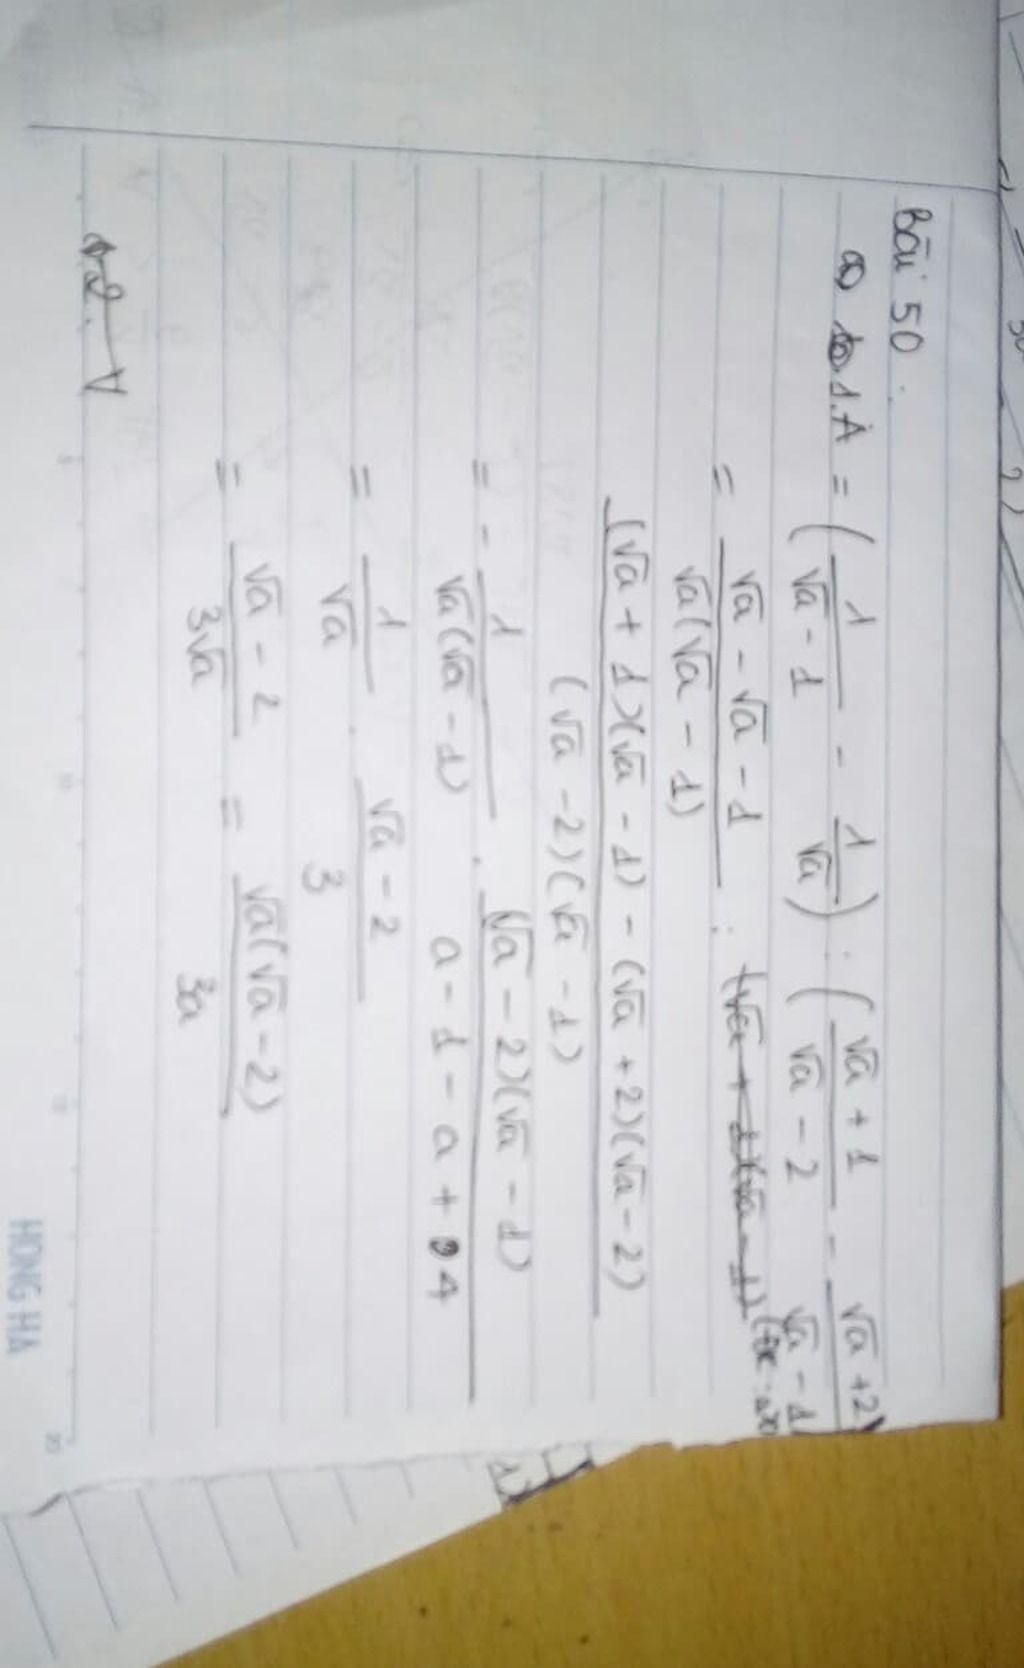 Bài 50.
a) 1. A = (1/(√a - 1) - 1/√a) : ((√a + 1)/(√a - 2) - (√a + 2)/(√a - 1
= (√a - √a - 1)/(√a(√a - 1)) :
((√a + 1)(√a - 1) - (√a + 2)(√a - 2))/((√a - 2)(√a - 1))
= - 1/(√a(√a - 1)) . ((√a - 2)(√a - 1))/(a - 1 - a + 4)
= 1/√a . (√a - 2)/3
= (√a - 2)/(3√a) = (√a(√a - 2))/(3a)
HONG HA